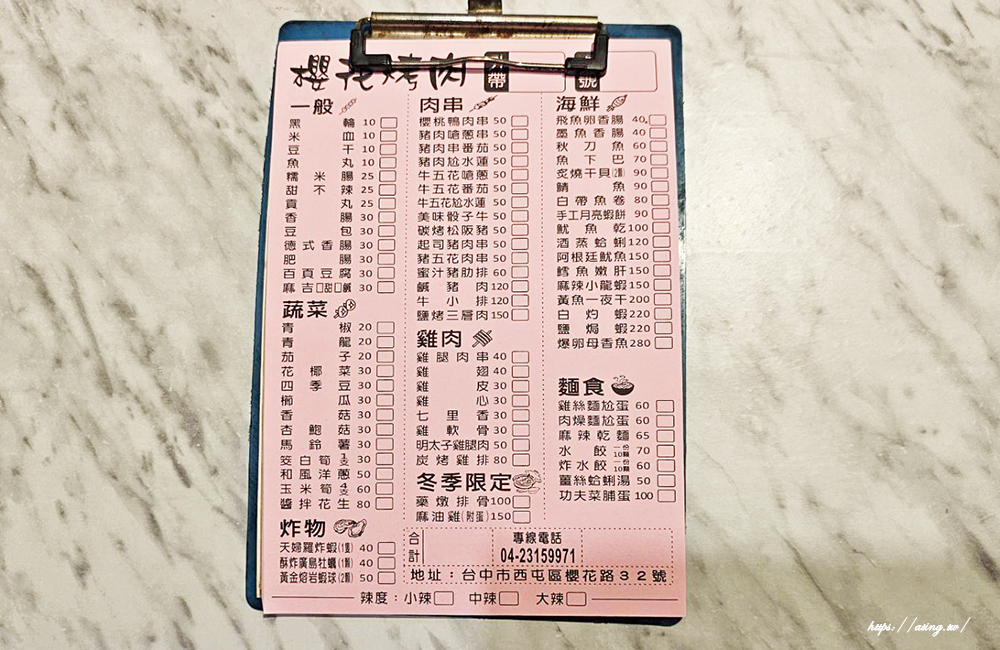 櫻花烤肉 外帶 號
一般
黑輪 10
米血 10
豆干 10
魚丸 10
糯米腸 25
甜不辣 25
貢丸 25
香腸 30
豆包 30
德式香腸 30
肥腸 30
百頁豆腐 30
麻吉□甜□鹹 30
蔬菜
青椒 20
青龍 20
茄子 20
花椰菜 30
四季豆 30
櫛瓜 30
香菇 30
杏鮑菇 30
馬鈴薯 30
筊白筍1支 30
和風洋蔥 50
玉米筍4支 60
醬拌花生 80
炸物
天婦羅炸蝦(1隻) 40
酥炸廣島牡蠣(1顆) 40
黃金熔岩蝦球(2顆) 50
肉串
櫻桃鴨肉串 50
豬肉嗆蔥串 50
豬肉串番茄 50
豬肉尬水蓮 50
牛五花嗆蔥 50
牛五花番茄 50
牛五花尬水蓮 50
美味骰子牛 50
碳烤松阪豬 50
起司豬肉串 50
豬五花肉串 50
蜜汁豬肋排 60
鹹豬肉 120
牛小排 120
鹽烤三層肉 150
雞肉
雞腿肉串 40
雞翅 40
雞皮 30
雞心 30
七里香 30
雞軟骨 30
明太子雞腿肉 50
炭烤雞排 80
冬季限定
藥燉排骨 100
麻油雞(附蛋) 150
海鮮
飛魚卵香腸 40
墨魚香腸 40
秋刀魚 60
魚下巴 70
炙燒干貝(2顆) 90
鯖魚 90
白帶魚卷 80
手工月亮蝦餅 90
魷魚乾 100
酒蒸蛤蜊 120
阿根廷魷魚 150
鱈魚嫩肝 150
麻辣小龍蝦 150
黃魚一夜干 200
白灼蝦 220
鹽焗蝦 220
爆卵母香魚 280
麵食
雞絲麵尬蛋 60
肉燥麵尬蛋 60
麻辣乾麵 65
水餃一份10顆 70
炸水餃一份10顆 60
薑絲蛤蜊湯 50
功夫菜脯蛋 100
合計
專線電話
04-23159971
地址：台中市西屯區櫻花路３２號
辣度：小辣 中辣 大辣
https://aking.tw/